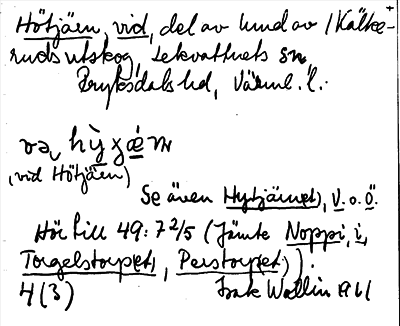 Hötjäen, vid, del av lund av (Kälke-
ruds utskog, Lekvattnets sn,
Fryksdals hd, Värml. l.
va, hỳχǽn
(vid Hötjäen)
Se även Hytjärnet), V. o. Ö.
Hör till 49: 7 2/5 (Jämte Noppi, i,
Torgelstorp(et), Perstorp(et)).
4(3) Wallin 1961